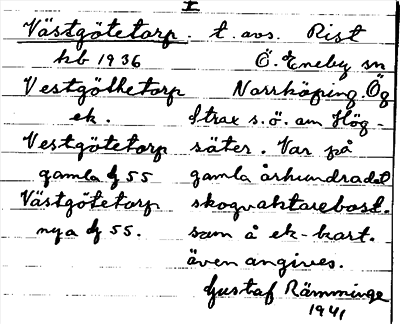 I
Västgötetorp. t. avs. Rist
kb 1936 Ö. Eneby sn
Vestgöthetorp Norrköping Ög
ek. Strax s.ö. om Hög-
Vestgötetorp säter. Var på
gamla Ij 55 gamla århundradet
Västgötetorp skogvaktarebost.
nya Ij 55. som å ek-kart.
även angives.
Gustaf Rämminge
1941